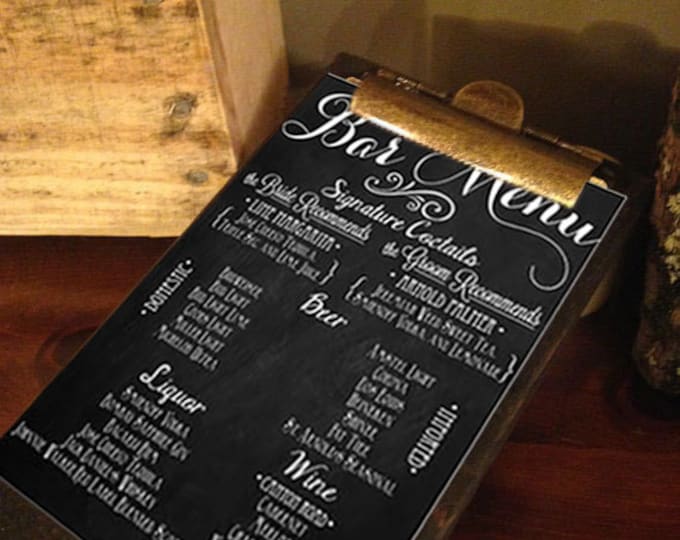 Bar Menu
Signature Coctails
the Bride Recommends
• LIME MARGARITA •
{ JOSE CUERVO TEQUILA,
TRIPLE SEC, AND LIME JUICE. }
the Groom Recommends
• ARNOLD PALMER •
SWEET TEA,
VODKA, AND LEMONADE. }
Beer
• DOMESTIC •
BUDWEISER
BUD LIGHT
BUD LIGHT LIME
COORS LIGHT
MILLER LIGHT
MICHELOB ULTRA
• IMPORTED •
AMSTEL LIGHT
CORONA
DOS EQUIS
HEINEKEN
SHINER
FAT TIRE
ST. ARNOLD'S SEASONAL
Liquor
SMIRNOFF VODKA
BOMBAY SAPPHIRE GIN
BACARDI RUM
JOSE CUERVO TEQUILA
JACK DANIELS WHISKEY
JOHNNIE WALKER RED LABEL BLENDED
Wine
CABERNET